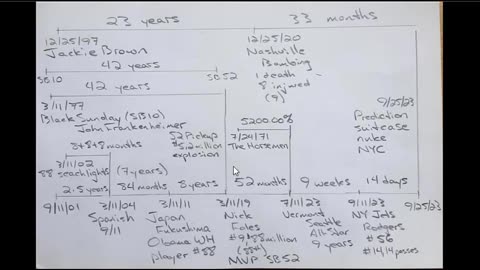 23 years
33 months
12/25/97
Jackie Brown
12/25/20
Nashville
Bombing
1 death
8 injured
(9)
42 years
SB10
SB52
42 years
3/11/77
Black Sunday (SB10)
John Frankenheimer
52 Pickup
$5.2 million
explosion
5200.00%
7/24/71
The Horsemen
9/25/23
Prediction
suitcase
nuke
NYC
8+8+8 months
3/11/02
88 searchlights
(7 years)
2.5 years
84 months
8 years
52 months
9 weeks
14 days
9/11/01
3/11/04
Spanish
9/11
3/11/11
Japan
Fukushima
Obama WH
player #58
3/11/19
Nick
Foles
#9 $88 million
(88M)
MVP SB52
7/11/23
Vermont
Seattle
All-Star
9 years
9/11/23
NY Jets
Rodgers
#56
#14,14 passes
9/25/23